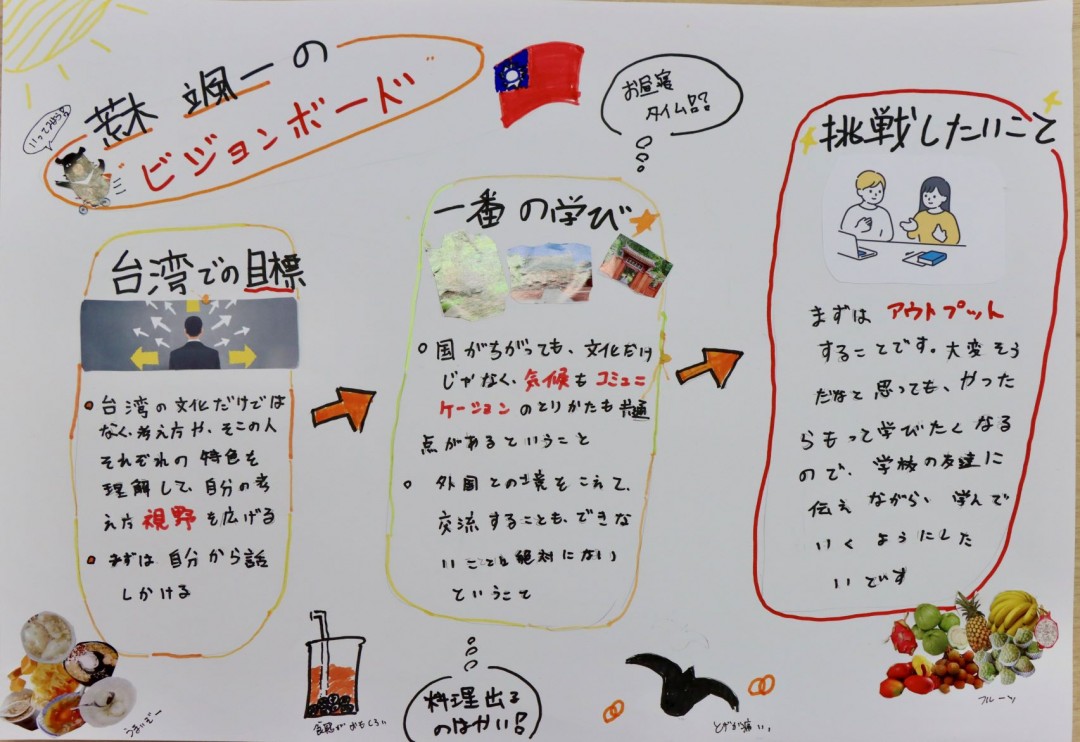 荒木 颯一の
ビジョンボード
いってみよう!
お昼寝
タイム!?
台湾での目標
台湾の文化だけでは
なく、考え方や、そこの人
それぞれの特色を
理解して、自分の考
え方視野を広げる
まずは自分から話
しかける
一番の学び
国がちがっても、文化だけ
じゃなく、気候もコミュニ
ケーションのとりかたも共通
点があるということ
外国との境をこえて、
交流することも、できな
いことは絶対にない
ということ
挑戦したいこと
まずは アウトプット
することです。大変そう
だなと思っても、やった
らもって学びたくなる
ので、学校の友達に
伝えながら、学んで
いくようにした
いです
うまいぞー
食感がおもしろい
料理出る
のはやい!
とげが痛い。
フルーツ